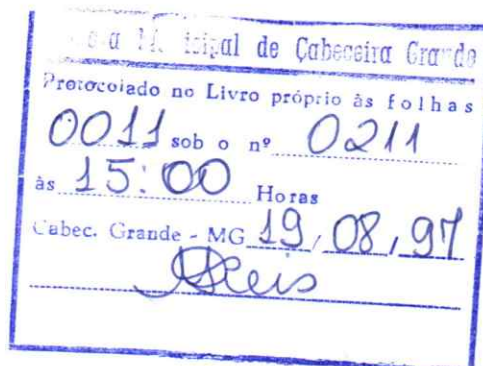 de Cabeceira Grande
Protocolado no Livro próprio às folhas
0011 sob o nº 0211
às 15:00 Horas
Cabec. Grande - MG 19/08/97
Reis